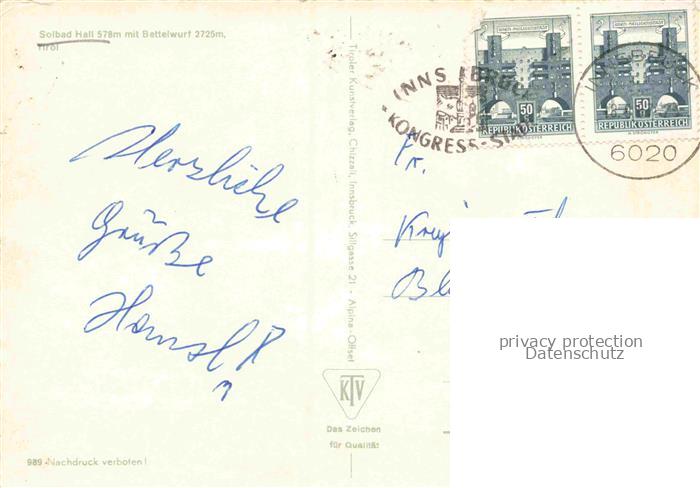 Solbad Hall 578m mit Bettelwurf 2725m,
Tirol
Herzliche
Grüße
989 - Nachdruck verboten!
Tiroler Kunstverlag, Chizzali, Innsbruck, Sillgasse 21 - Alpina-Offset
KTV
Das Zeichen
für Qualität
INNSBRUCK
KONGRESS-
WIEN-HEILIGENSTADT
50
REPUBLIK ÖSTERREICH
WIEN-HEILIGENSTADT
50
REPUBLIK ÖSTERREICH
INNSBRUCK
6020
Fr.
privacy protection
Datenschutz